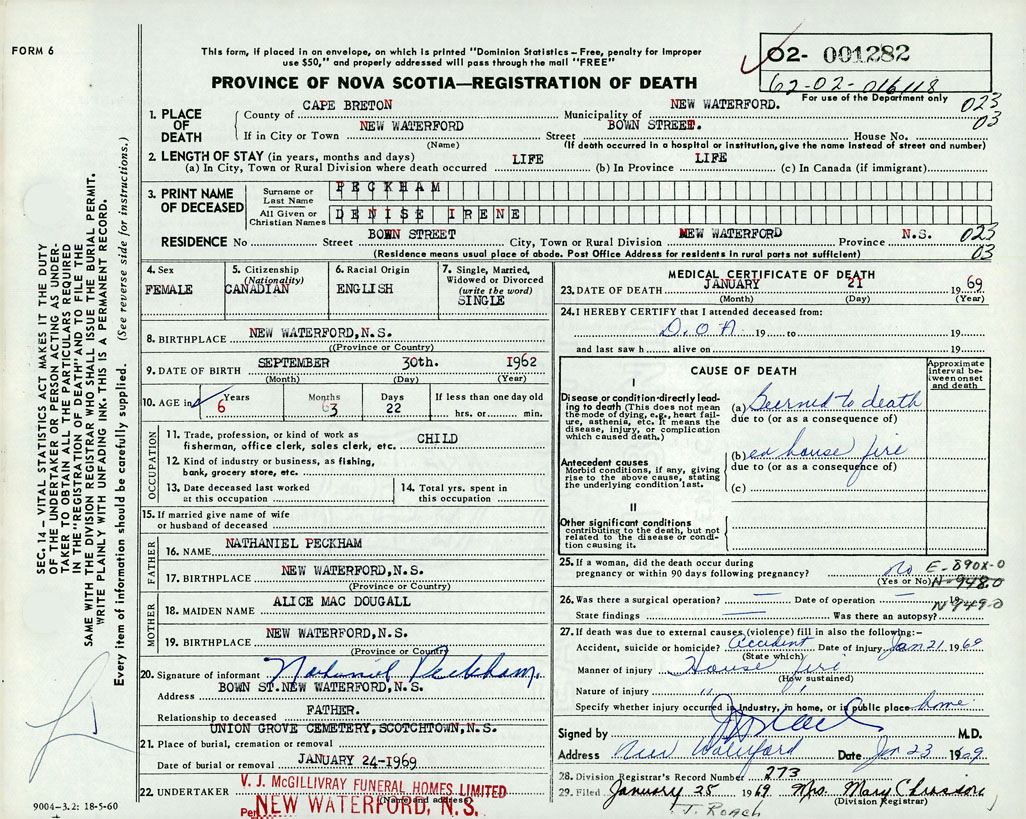 FORM 6
This form, if placed in an envelope, on which is printed "Dominion Statistics – Free, penalty for improper
use $50," and properly addressed will pass through the mail "FREE"
PROVINCE OF NOVA SCOTIA—REGISTRATION OF DEATH
02- 001282
62-02-016118
For use of the Department only
023
03
1. PLACE OF DEATH
County of CAPE BRETON Municipality of NEW WATERFORD.
If in City or Town NEW WATERFORD Street BOWN STREET. House No.
(Name) (If death occurred in a hospital or institution, give the name instead of street and number)
2. LENGTH OF STAY (in years, months and days)
(a) In City, Town or Rural Division where death occurred LIFE (b) In Province LIFE (c) In Canada (if immigrant)
3. PRINT NAME OF DECEASED
Surname or Last Name PECKHAM
All Given or Christian Names DENISE IRENE
RESIDENCE No Street BOWN STREET City, Town or Rural Division NEW WATERFORD Province N.S. 023
03
(Residence means usual place of abode. Post Office Address for residents in rural parts not sufficient)
4. Sex FEMALE
5. Citizenship (Nationality) CANADIAN
6. Racial Origin ENGLISH
7. Single, Married, Widowed or Divorced (write the word) SINGLE
8. BIRTHPLACE NEW WATERFORD,N.S.
((Province or Country)
9. DATE OF BIRTH SEPTEMBER 30th. 1962
(Month) (Day) (Year)
10. AGE in Years 6 Months 3 Days 22 If less than one day old hrs. or min.
OCCUPATION
11. Trade, profession, or kind of work as fisherman, office clerk, sales clerk, etc. CHILD
12. Kind of industry or business, as fishing, bank, grocery store, etc.
13. Date deceased last worked at this occupation
14. Total yrs. spent in this occupation
15. If married give name of wife or husband of deceased
FATHER
16. NAME NATHANIEL PECKHAM
17. BIRTHPLACE NEW WATERFORD,N.S.
(Province or Country)
MOTHER
18. MAIDEN NAME ALICE MAC DOUGALL
19. BIRTHPLACE NEW WATERFORD,N.S.
(Province or Country)
20. Signature of informant Nathaniel Peckham.
Address BOWN ST.NEW WATERFORD,N.S.
Relationship to deceased FATHER.
UNION GROVE CEMETERY,SCOTCHTOWN,N.S.
21. Place of burial, cremation or removal
Date of burial or removal JANUARY 24-1969
22. UNDERTAKER V. J. McGILLIVRAY FUNERAL HOMES LIMITED
(Name and address)
Per NEW WATERFORD, N. S.
MEDICAL CERTIFICATE OF DEATH
23. DATE OF DEATH JANUARY 21 1969
(Month) (Day) (Year)
24. I HEREBY CERTIFY that I attended deceased from:
D.O.A. 19 to 19
and last saw h alive on 19
CAUSE OF DEATH
Approximate interval between onset and death
I
Disease or condition directly leading to death (This does not mean the mode of dying, e.g., heart failure, asthenia, etc. It means the disease, injury, or complication which caused death.)
(a) Burned to death
due to (or as a consequence of)
Antecedent causes
Morbid conditions, if any, giving rise to the above cause, stating the underlying condition last.
(b) house fire
due to (or as a consequence of)
(c)
II
Other significant conditions
contributing to the death, but not related to the disease or condition causing it.
25. If a woman, did the death occur during pregnancy or within 90 days following pregnancy? no
(Yes or No)
E-890X-0
N-948.0
N-949-0
26. Was there a surgical operation? — Date of operation — 19
State findings — Was there an autopsy?
27. If death was due to external causes (violence) fill in also the following:-
Accident, suicide or homicide? accident Date of injury Jan 21 1969
(State which)
Manner of injury House fire
(How sustained)
Nature of injury " "
Specify whether injury occurred in industry, in home, or in public place home
Signed by M.D.
Address New Waterford Date Jan 23 1969
28. Division Registrar's Record Number 273
29. Filed January 25 1969 Mrs. Mary Chiasson
(Division Registrar)
T. ROACH
SEC. 14 – VITAL STATISTICS ACT MAKES IT THE DUTY
OF THE UNDERTAKER OR PERSON ACTING AS UNDER-
TAKER TO OBTAIN ALL THE PARTICULARS REQUIRED
IN THE "REGISTRATION OF DEATH" AND TO FILE THE
SAME WITH THE DIVISION REGISTRAR WHO SHALL ISSUE THE BURIAL PERMIT.
WRITE PLAINLY WITH UNFADING INK. THIS IS A PERMANENT RECORD.
Every item of information should be carefully supplied. (See reverse side for instructions.)
9004-3.2: 18-5-60